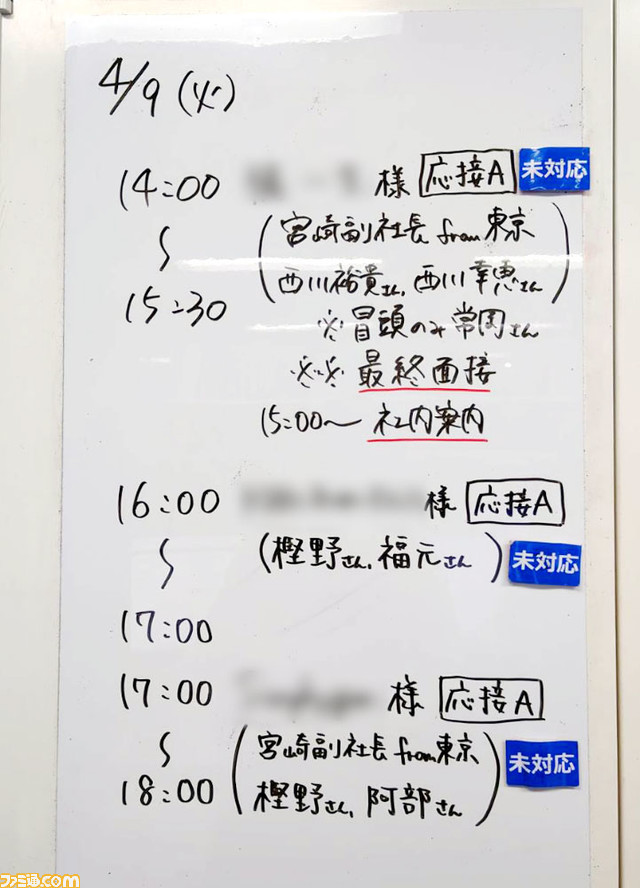 4/9(火)
14:00 様 応接A 未対応
〜 (宮崎副社長 from 東京
15:30 西川裕貴さん, 西川幸恵さん)
※冒頭のみ常周さん
※※最終面接
15:00〜 社内案内
16:00 様 応接A
〜 (樫野さん, 福元さん) 未対応
17:00
17:00 様 応接A
〜 (宮崎副社長 from 東京 未対応
18:00 樫野さん, 阿部さん)
ファミ通.com